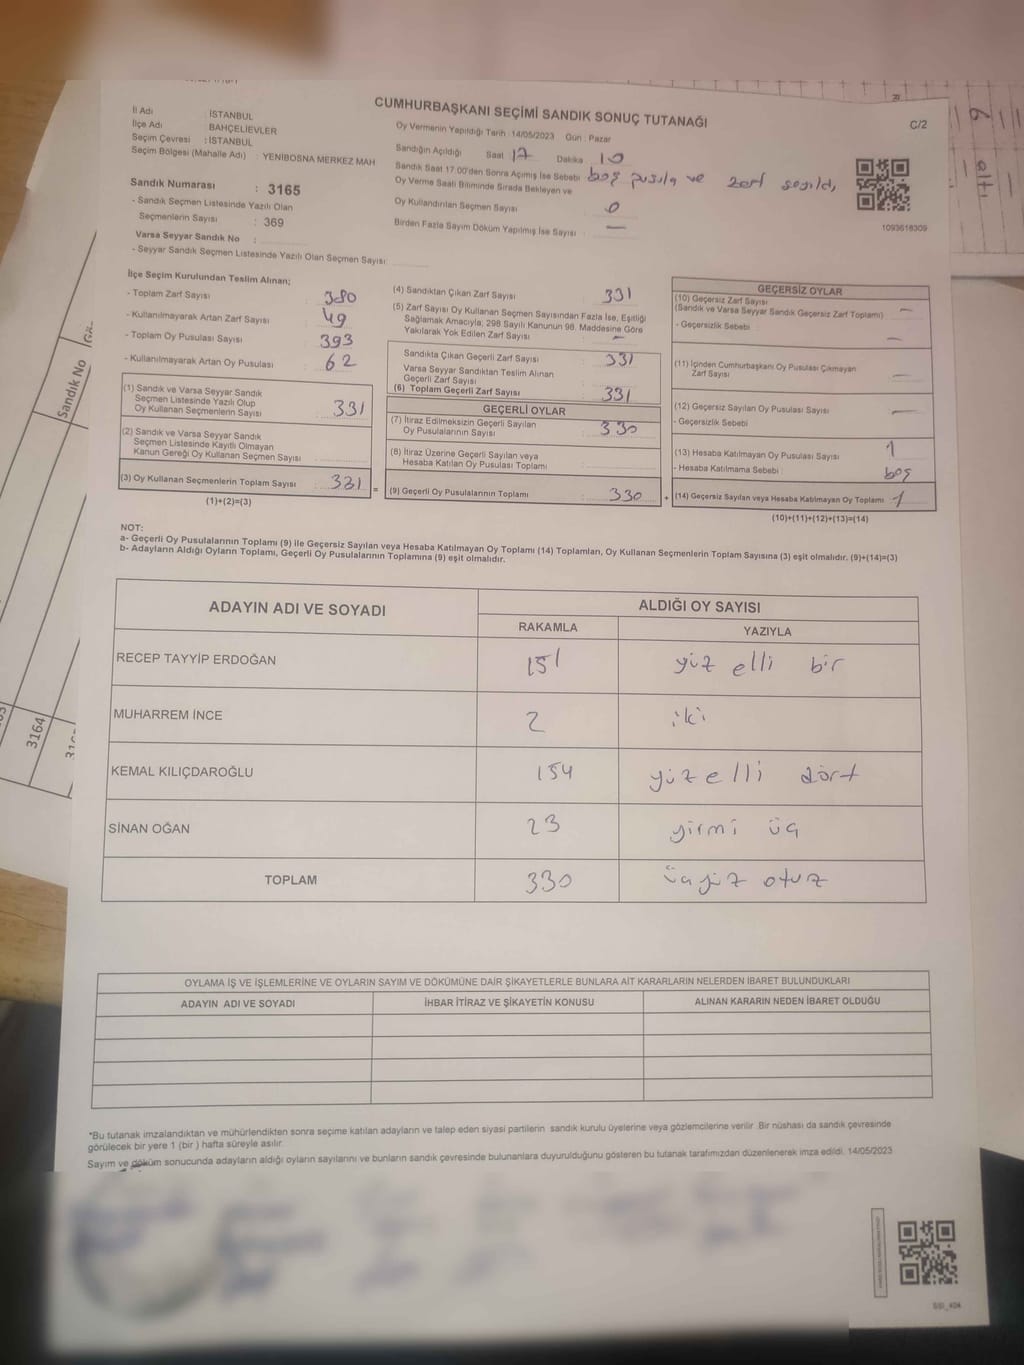 CUMHURBAŞKANI SEÇİMİ SANDIK SONUÇ TUTANAĞI
C/2
İl Adı : İSTANBUL
İlçe Adı BAHÇELİEVLER
Seçim Çevresi : İSTANBUL
Seçim Bölgesi (Mahalle Adı) : YENİBOSNA MERKEZ MAH
Sandık Numarası : 3165
- Sandık Seçmen Listesinde Yazılı Olan
Seçmenlerin Sayısı : 369
Varsa Seyyar Sandık No :
- Seyyar Sandık Seçmen Listesinde Yazılı Olan Seçmen Sayısı:
Oy Vermenin Yapıldığı Tarih :14/05/2023 Gün : Pazar
Sandığın Açıldığı Saat 17 Dakika 10
Sandık Saat 17.00'den Sonra Açılmış İse Sebebi boş pusula ve zarf sayıldı
Oy Verme Saati Bitiminde Sırada Bekleyen ve
Oy Kullandırılan Seçmen Sayısı 0
Birden Fazla Sayım Döküm Yapılmış İse Sayısı : —
1093618309
İlçe Seçim Kurulundan Teslim Alınan;
- Toplam Zarf Sayısı 380
- Kullanılmayarak Artan Zarf Sayısı 49
- Toplam Oy Pusulası Sayısı 393
- Kullanılmayarak Artan Oy Pusulası 62
(1) Sandık ve Varsa Seyyar Sandık
Seçmen Listesinde Yazılı Olup
Oy Kullanan Seçmenlerin Sayısı 331
(2) Sandık ve Varsa Seyyar Sandık
Seçmen Listesinde Kayıtlı Olmayan
Kanun Gereği Oy Kullanan Seçmen Sayısı
(3) Oy Kullanan Seçmenlerin Toplam Sayısı 331
(1)+(2)=(3)
=
(4) Sandıktan Çıkan Zarf Sayısı 331
(5) Zarf Sayısı Oy Kullanan Seçmen Sayısından Fazla İse, Eşitliği
Sağlamak Amacıyla; 298 Sayılı Kanunun 98. Maddesine Göre
Yakılarak Yok Edilen Zarf Sayısı : —
Sandıkta Çıkan Geçerli Zarf Sayısı 331
Varsa Seyyar Sandıktan Teslim Alınan
Geçerli Zarf Sayısı
(6) Toplam Geçerli Zarf Sayısı 331
GEÇERLİ OYLAR
(7) İtiraz Edilmeksizin Geçerli Sayılan
Oy Pusulalarının Sayısı 330
(8) İtiraz Üzerine Geçerli Sayılan veya
Hesaba Katılan Oy Pusulası Toplamı
(9) Geçerli Oy Pusulalarının Toplamı 330
+
GEÇERSİZ OYLAR
(10) Geçersiz Zarf Sayısı —
(Sandık ve Varsa Seyyar Sandık Geçersiz Zarf Toplamı)
- Geçersizlik Sebebi : —
(11) İçinden Cumhurbaşkanı Oy Pusulası Çıkmayan
Zarf Sayısı —
(12) Geçersiz Sayılan Oy Pusulası Sayısı —
- Geçersizlik Sebebi
(13) Hesaba Katılmayan Oy Pusulası Sayısı 1
- Hesaba Katılmama Sebebi boş
(14) Geçersiz Sayılan veya Hesaba Katılmayan Oy Toplamı 1
(10)+(11)+(12)+(13)=(14)
NOT:
a- Geçerli Oy Pusulalarının Toplamı (9) ile Geçersiz Sayılan veya Hesaba Katılmayan Oy Toplamı (14) Toplamları, Oy Kullanan Seçmenlerin Toplam Sayısına (3) eşit olmalıdır. (9)+(14)=(3)
b- Adayların Aldığı Oyların Toplamı, Geçerli Oy Pusulalarının Toplamına (9) eşit olmalıdır.
ADAYIN ADI VE SOYADI ALDIĞI OY SAYISI
RAKAMLA YAZIYLA
RECEP TAYYİP ERDOĞAN 151 yüz elli bir
MUHARREM İNCE 2 iki
KEMAL KILIÇDAROĞLU 154 yüz elli dört
SİNAN OĞAN 23 yirmi üç
TOPLAM 330 üçyüz otuz
OYLAMA İŞ VE İŞLEMLERİNE VE OYLARIN SAYIM VE DÖKÜMÜNE DAİR ŞİKAYETLERLE BUNLARA AİT KARARLARIN NELERDEN İBARET BULUNDUKLARI
ADAYIN ADI VE SOYADI İHBAR İTİRAZ VE ŞİKAYETİN KONUSU ALINAN KARARIN NEDEN İBARET OLDUĞU
*Bu tutanak imzalandıktan ve mühürlendikten sonra seçime katılan adayların ve talep eden siyasi partilerin sandık kurulu üyelerine veya gözlemcilerine verilir. Bir nüshası da sandık çevresinde
görülecek bir yere 1 (bir ) hafta süreyle asılır.
Sayım ve döküm sonucunda adayların aldığı oyların sayılarını ve bunların sandık çevresinde bulunanlara duyurulduğunu gösteren bu tutanak tarafımızdan düzenlenerek imza edildi. 14/05/2023
Sandık No
3164
6
altı